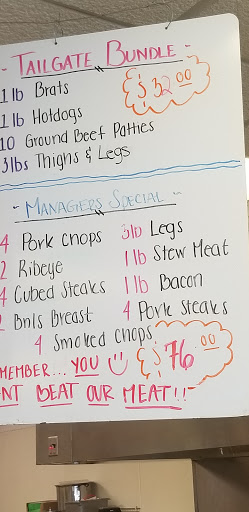 - TAILGATE BUNDLE -
1 lb Brats
1 lb Hotdogs
10 Ground Beef Patties
3lbs Thighs & Legs
$ 32.00
- MANAGERS SPECIAL -
4 Pork Chops
2 Ribeye
4 Cubed Steaks
2 Bnls Breast
3lb Legs
1 lb Stew Meat
1 lb Bacon
4 Pork Steaks
4 Smoked Chops
$ 76.00
MEMBER... YOU
NT BEAT OUR MEAT!!